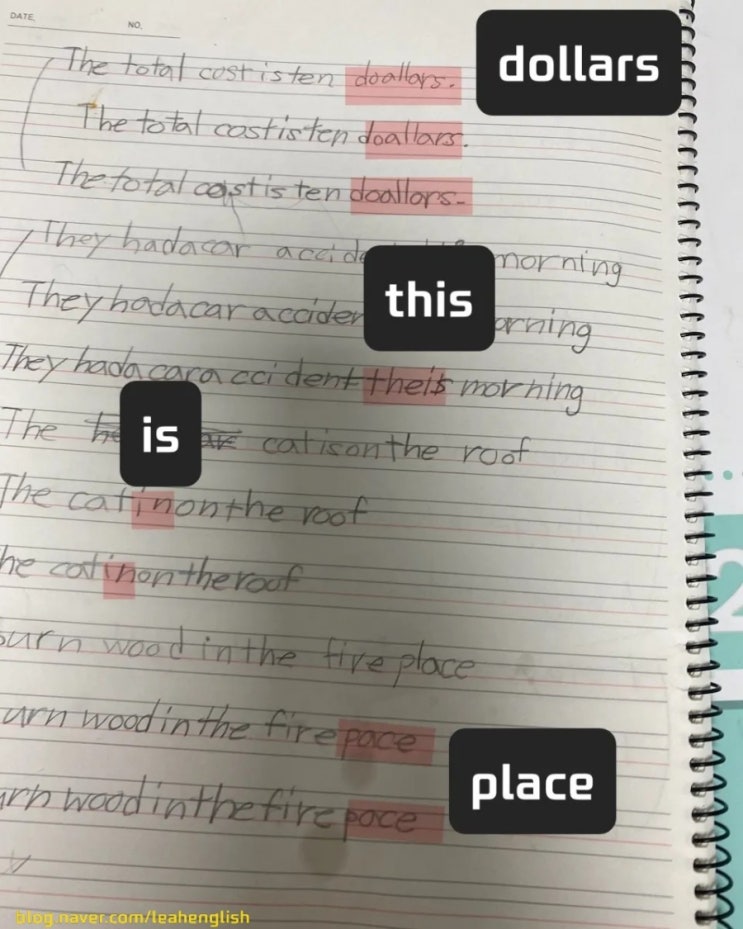 DATE.
NO.
dollars
The total cost is ten doallars.
The total cost is ten doallars.
The total cost is ten doallors.
They had a car morning
this
They had a car
They had a car a cci dent theis morning
is
The cat is on the roof
The cat in on the roof
he cat in on the roof
wood in the fire place
urn wood in the fire pace
place
rn wood in the fire pace
blog.naver.com/leahenglish
2